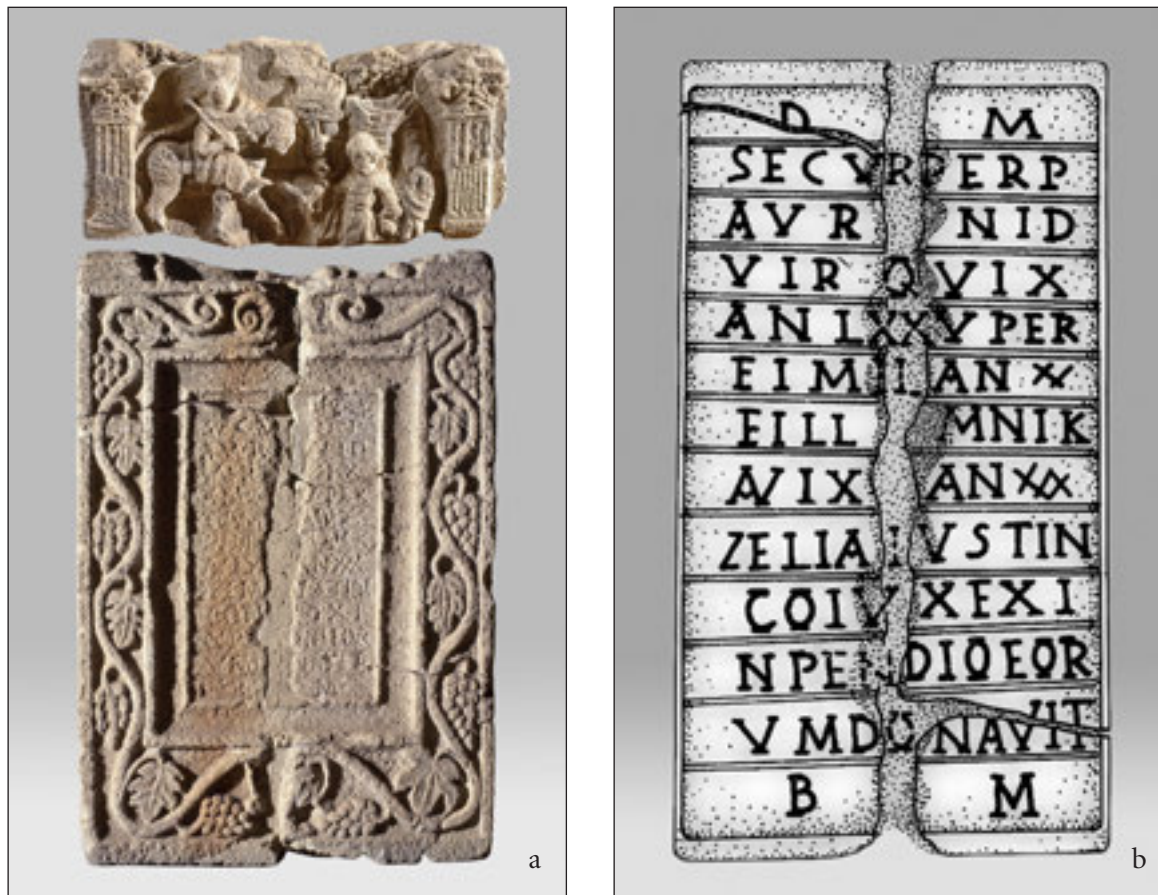 D M
SECVRPERP
AVR NID
VIR Q VIX
ANLXXVPER
EIMILAN XX
FILL MNIK
AVIX AN XXX
ZELIA IVSTIN
COIVXEXI
NPENDIOEOR
VMDONAVIT
B M
a
b